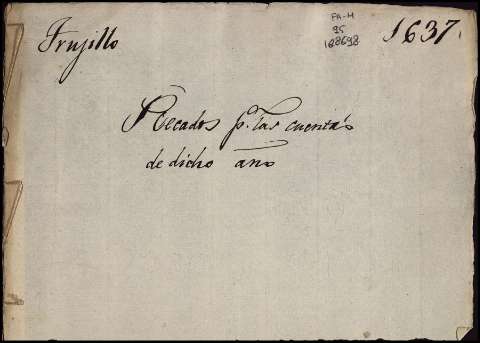 Trujillo
PA-M
95
188698
1637
Recados p.ª las cuentas
de dicho año